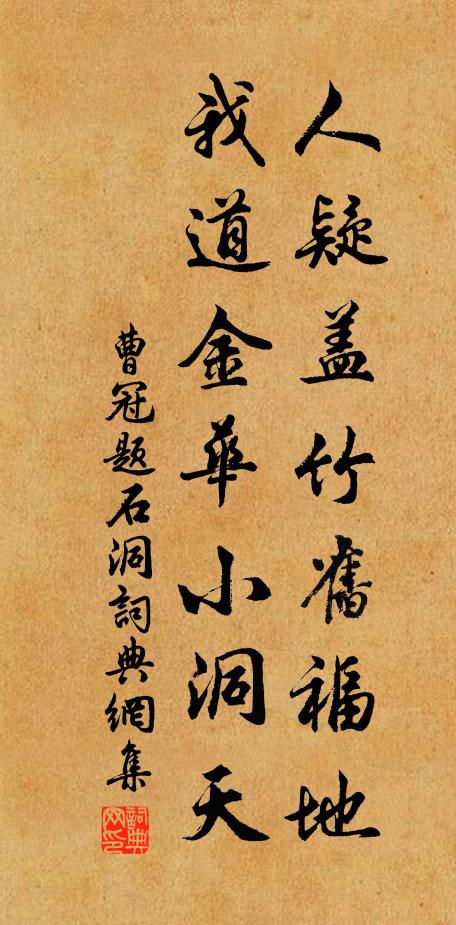 人疑盖竹舊福地
我道金華小洞天
曹冠题石洞詞典網集
詞典网印